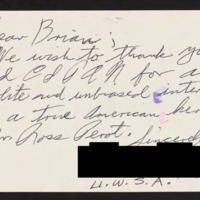 ear Brian;
We wish to thank you
d CSPAN for a
lite and unbiased inter
a true American her
r. Ross Perot. Sincerely
U.W.S.A.